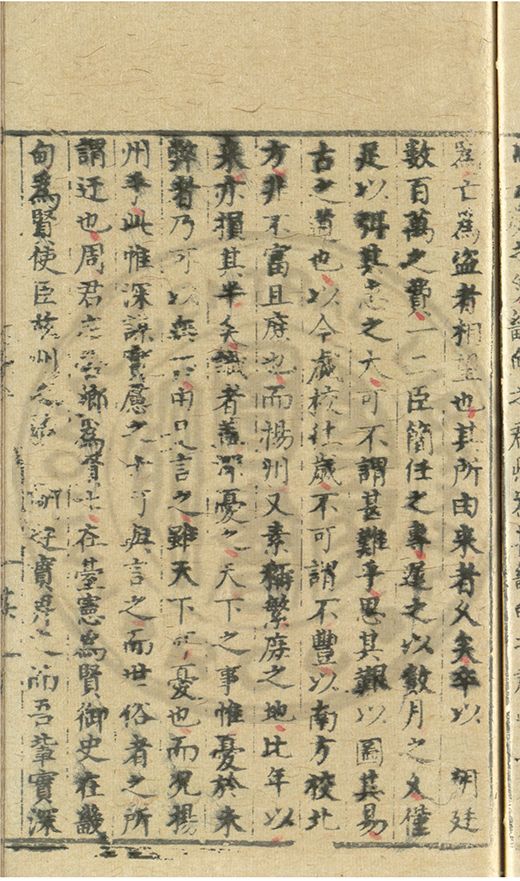 亡為盜者相望也其所由來者久矣卒以 朝廷
數百萬之費一二臣簡任之專遲之以數月之久僅
足以弭其患之大可不謂甚難乎思其艱以圖其易
古之道也以今歲校往歲不可謂不豐以南方校北
方非不富且庶也而楊州又素稱繁庶之地比年以
來亦損其半矣識者蓋深憂之天下之事惟憂於未
弊者乃可以無一言之雖天下可憂也而況揚
州乎此惟深謀實慮之士可與言之而世俗者之所
謂迂也周君在吾鄉為賢士在臺憲為賢御史在畿
甸為賢使臣茲州之 朝廷實畀之而吾輩實深